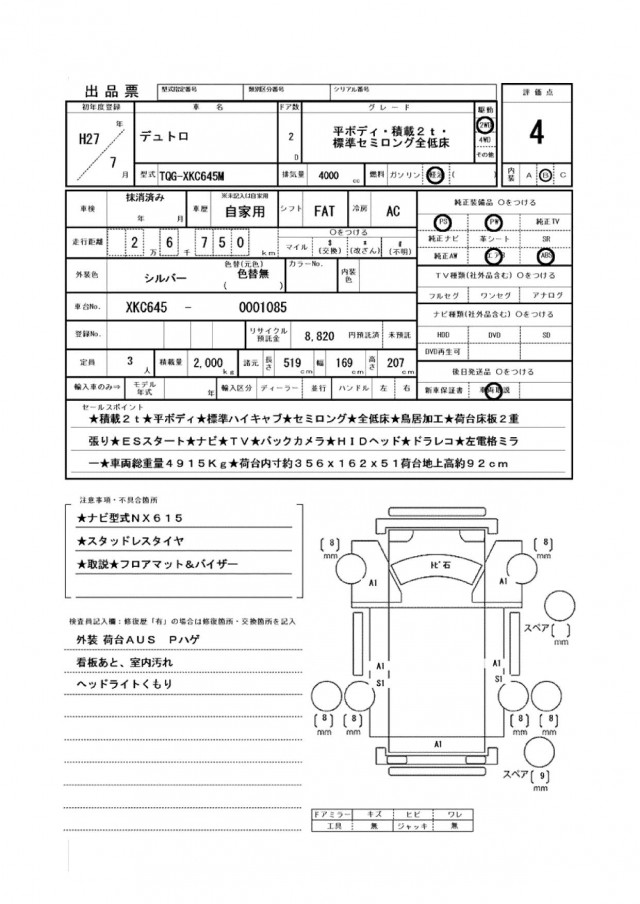 出品票 型式指定番号 類別区分番号 シリアル番号
評価点
初年度登録 車名 ドア数 グレード 駆動
H27年 デュトロ 2D 平ボディ・積載2t・ 2WD 4
7月 標準セミロング全低床 4WD
その他
型式 TQG-XKC645M 排気量 4000cc 燃料 ガソリン (軽油) 内装 A B C
車検 抹消済み 年 月 車歴 ※未記入は自家用 自家用 シフト FAT 冷房 AC
純正装備品 〇をつける
PS PW 純正TV
走行距離 2万6千750km 〇をつける マイル $(交換) *(改ざん) #(不明)
純正ナビ 革シート SR
純正AW エアB ABS
外装色 シルバー 色替(元色) 色替無 ( ) カラーNo. 内装色
TV種類(社外品含む)〇をつける
フルセグ ワンセグ アナログ
車台No. XKC645 - 0001085
ナビ種類(社外品含む)〇をつける
登録No. リサイクル預託金 8,820 円預託済 未預託
HDD DVD SD
DVD再生可
定員 3人 積載量 2,000kg 諸元 長さ 519cm 幅 169cm 高さ 207cm
後日発送品 〇をつける
輸入車のみ⇒ モデル年式 年 輸入区分 ディーラー 並行 ハンドル 左 右
新車保証書 車両取説
セールスポイント
★積載2t★平ボディ★標準ハイキャブ★セミロング★全低床★鳥居加工★荷台床板2重
張り★ESスタート★ナビ★TV★バックカメラ★HIDヘッド★ドラレコ★左電格ミラ
ー★車両総重量4915Kg★荷台内寸約356x162x51荷台地上高約92cm
注意事項・不具合箇所
★ナビ型式NX615
★スタッドレスタイヤ
★取説★フロアマット&バイザー
検査員記入欄:修復歴「有」の場合は修復箇所・交換箇所を記入
外装 荷台AUS Pハゲ
看板あと、室内汚れ
ヘッドライトくもり
(8)mm (8)mm
トビ石
A1 A1
スペア( )mm
A1 A1
S1 S1
(8)mm (8)mm (8)mm (8)mm
A1
スペア(9)mm
ドアミラー キズ ヒビ ワレ
工具 無 ジャッキ 無